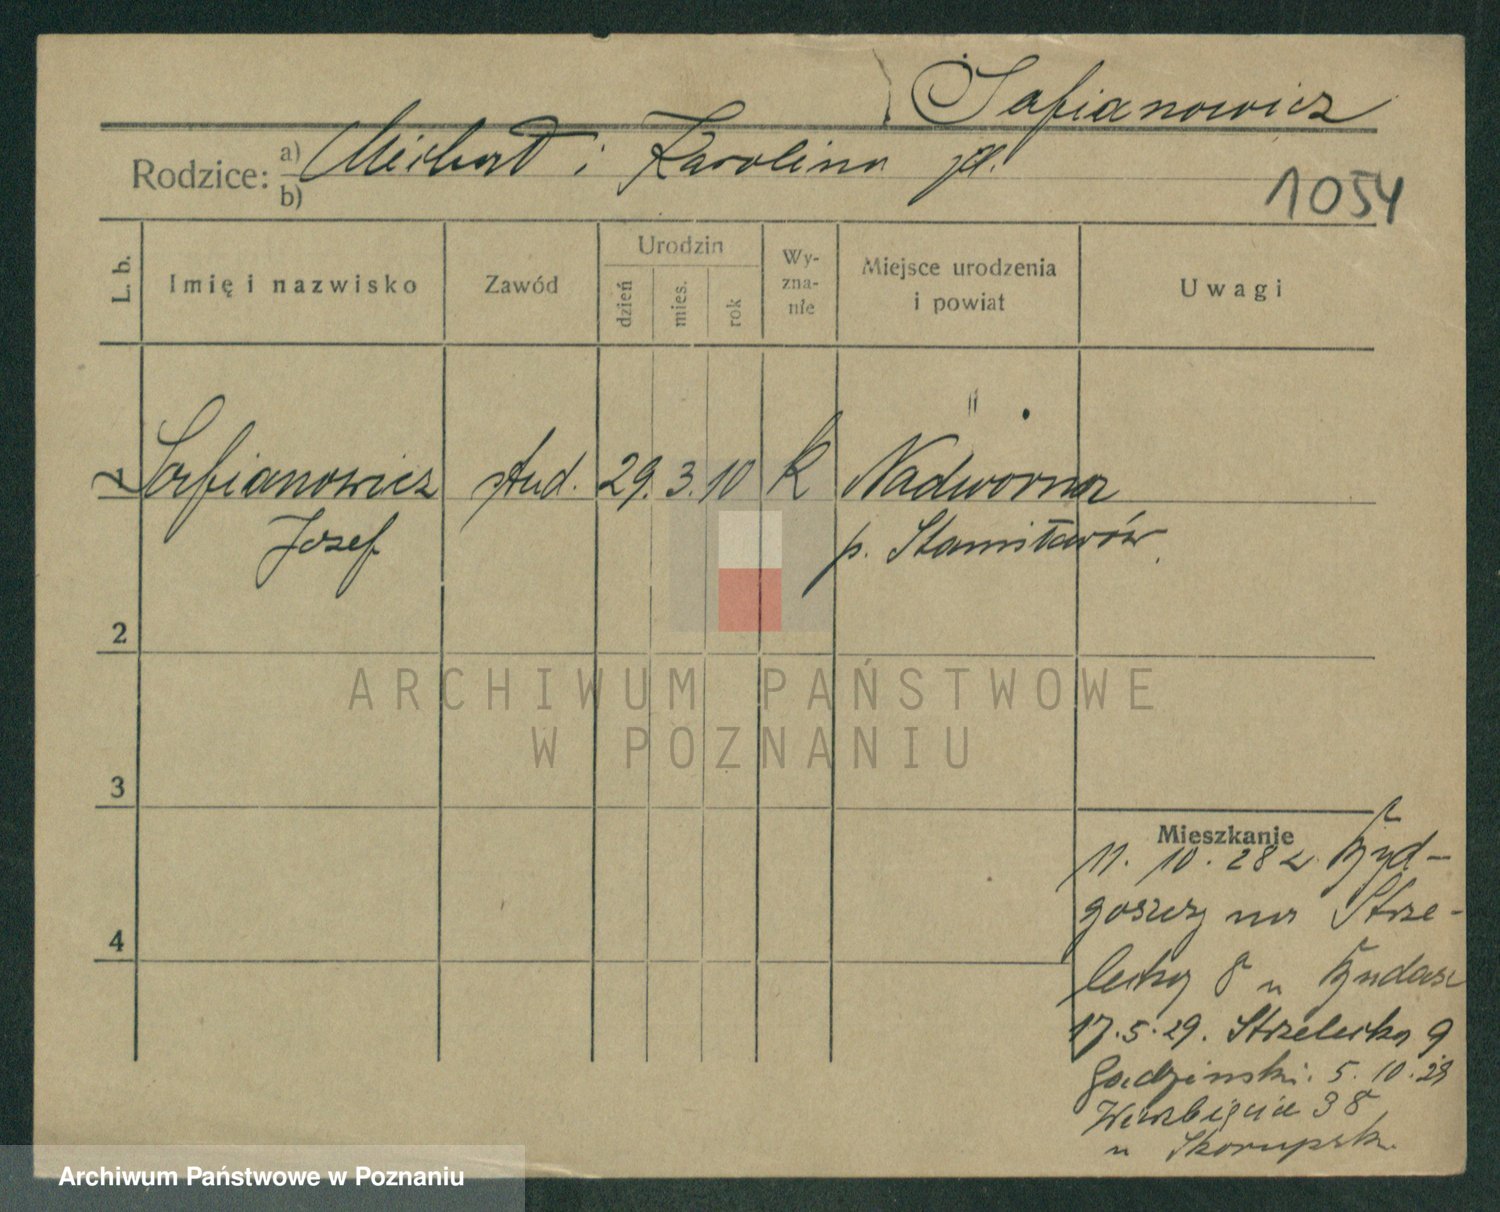 Safianowicz
Rodzice: a) Michał i Karolina
b)
1054
L. b. Imię i nazwisko Zawód Urodzin dzień mies. rok Wy-zna-nie Miejsce urodzenia i powiat Uwagi
1 Safianowicz stud. 29. 3. 10 k Nadwórna
Józef p. Stanisławów
2
3
4
Mieszkanie
11. 10. 28 z Byd-
goszczy na Strze-
lecką 8 u
17.5.29. Strzelecka 9
Godzinski. 5. 10. 29
Wierzbięcice 38
u Skorupsk.
ARCHIWUM PAŃSTWOWE
W POZNANIU
Archiwum Państwowe w Poznaniu